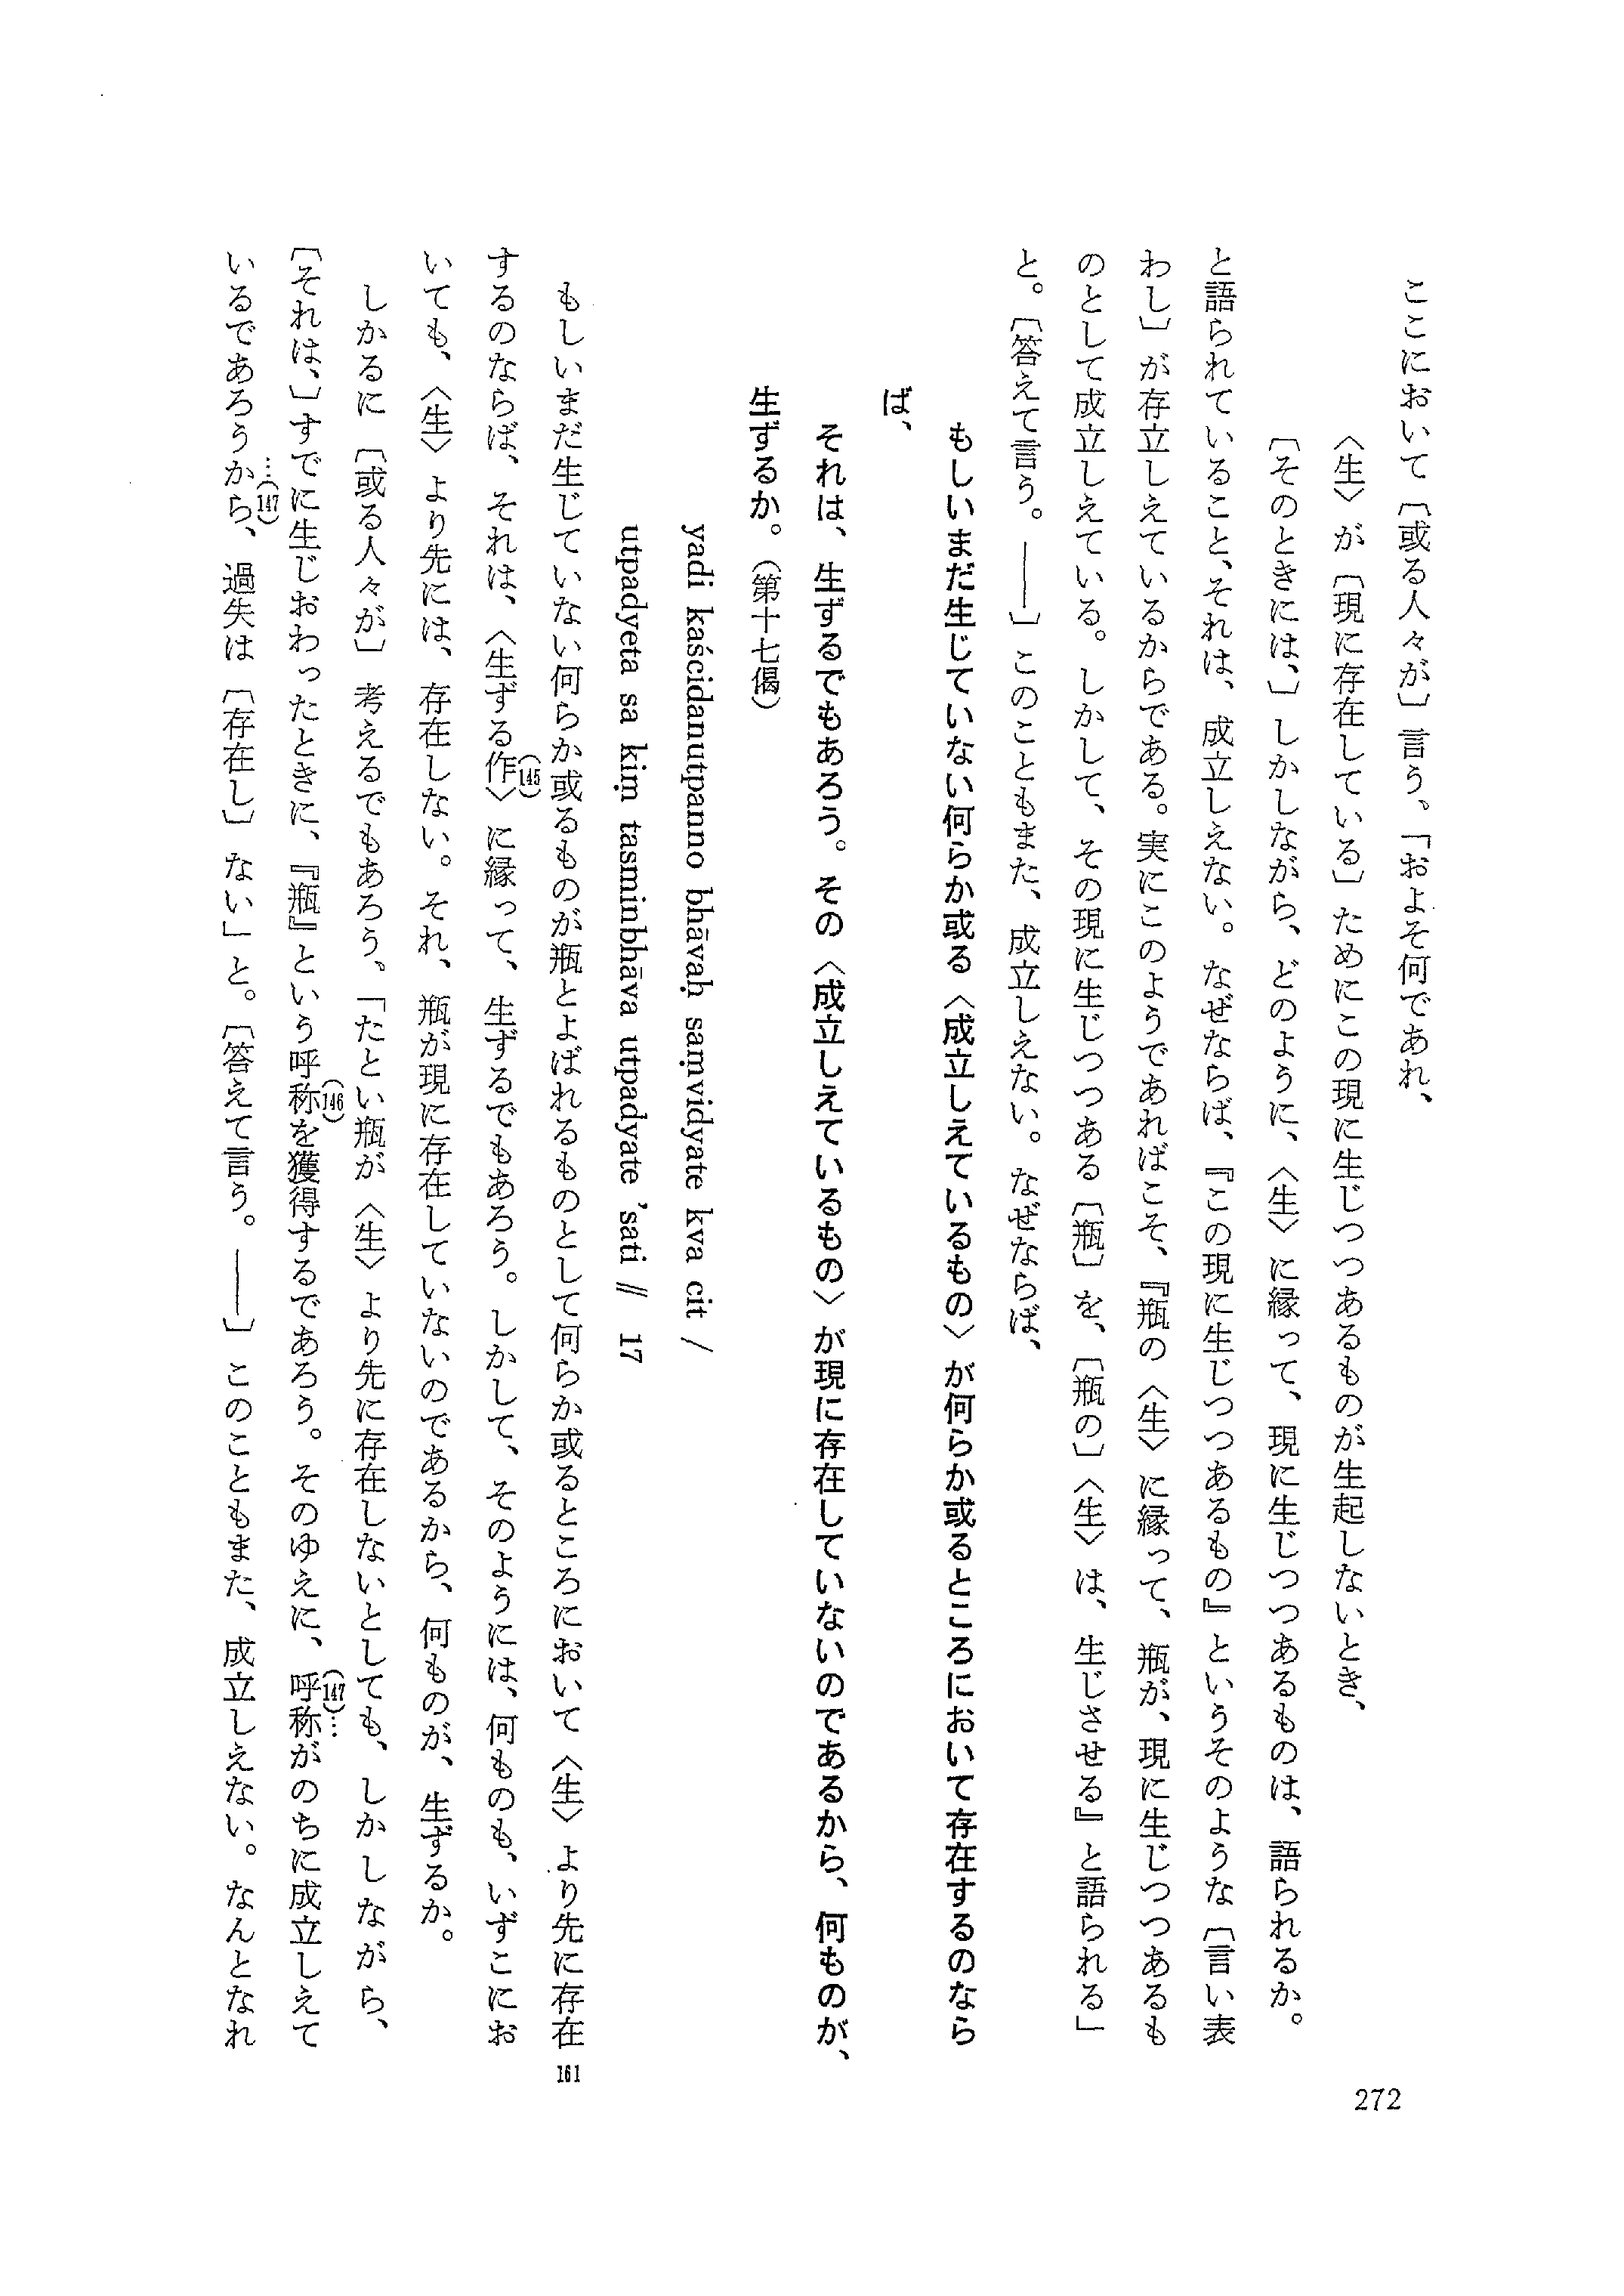 ここにおいて〔或る人々が〕言う、「およそ何であれ、
〈生〉が〔現に存在している〕ためにこの現に生じつつあるものが生起しないとき、
〔そのときには、〕しかしながら、どのように、〈生〉に縁って、現に生じつつあるものは、語られるか。
と語られていること、それは、成立しえない。なぜならば、『この現に生じつつあるもの』というそのような〔言い表
わし〕が存立しえているからである。実にこのようであればこそ、『瓶の〈生〉に縁って、瓶が、現に生じつつあるも
のとして成立しえている。しかして、その現に生じつつある〔瓶〕を、〔瓶の〕〈生〉は、生じさせる』と語られる」
と。〔答えて言う。――〕このこともまた、成立しえない。なぜならば、
もしいまだ生じていない何らか或る〈成立しえているもの〉が何らか或るところにおいて存在するのなら
ば、
それは、生ずるでもあろう。その〈成立しえているもの〉が現に存在していないのであるから、何ものが、
生ずるか。（第十七偈）
yadi kaścidanutpanno bhāvaḥ saṃvidyate kva cit /
utpadyeta sa kiṃ tasminbhāva utpadyate ’sati // 17
もしいまだ生じていない何らか或るものが瓶とよばれるものとして何らか或るところにおいて〈生〉より先に存在
161
するのならば、それは、〈生ずる作(145)〉に縁って、生ずるでもあろう。しかして、そのようには、何ものも、いずこにお
いても、〈生〉より先には、存在しない。それ、瓶が現に存在していないのであるから、何ものが、生ずるか。
しかるに〔或る人々が〕考えるでもあろう、「たとい瓶が〈生〉より先に存在しないとしても、しかしながら、
〔それは、〕すでに生じおわったときに、『瓶』という呼称(146)を獲得するであろう。そのゆえに、(147)…呼称がのちに成立しえて
いるであろうから…(147)、過失は〔存在し〕ない」と。〔答えて言う。――〕このこともまた、成立しえない。なんとなれ
272